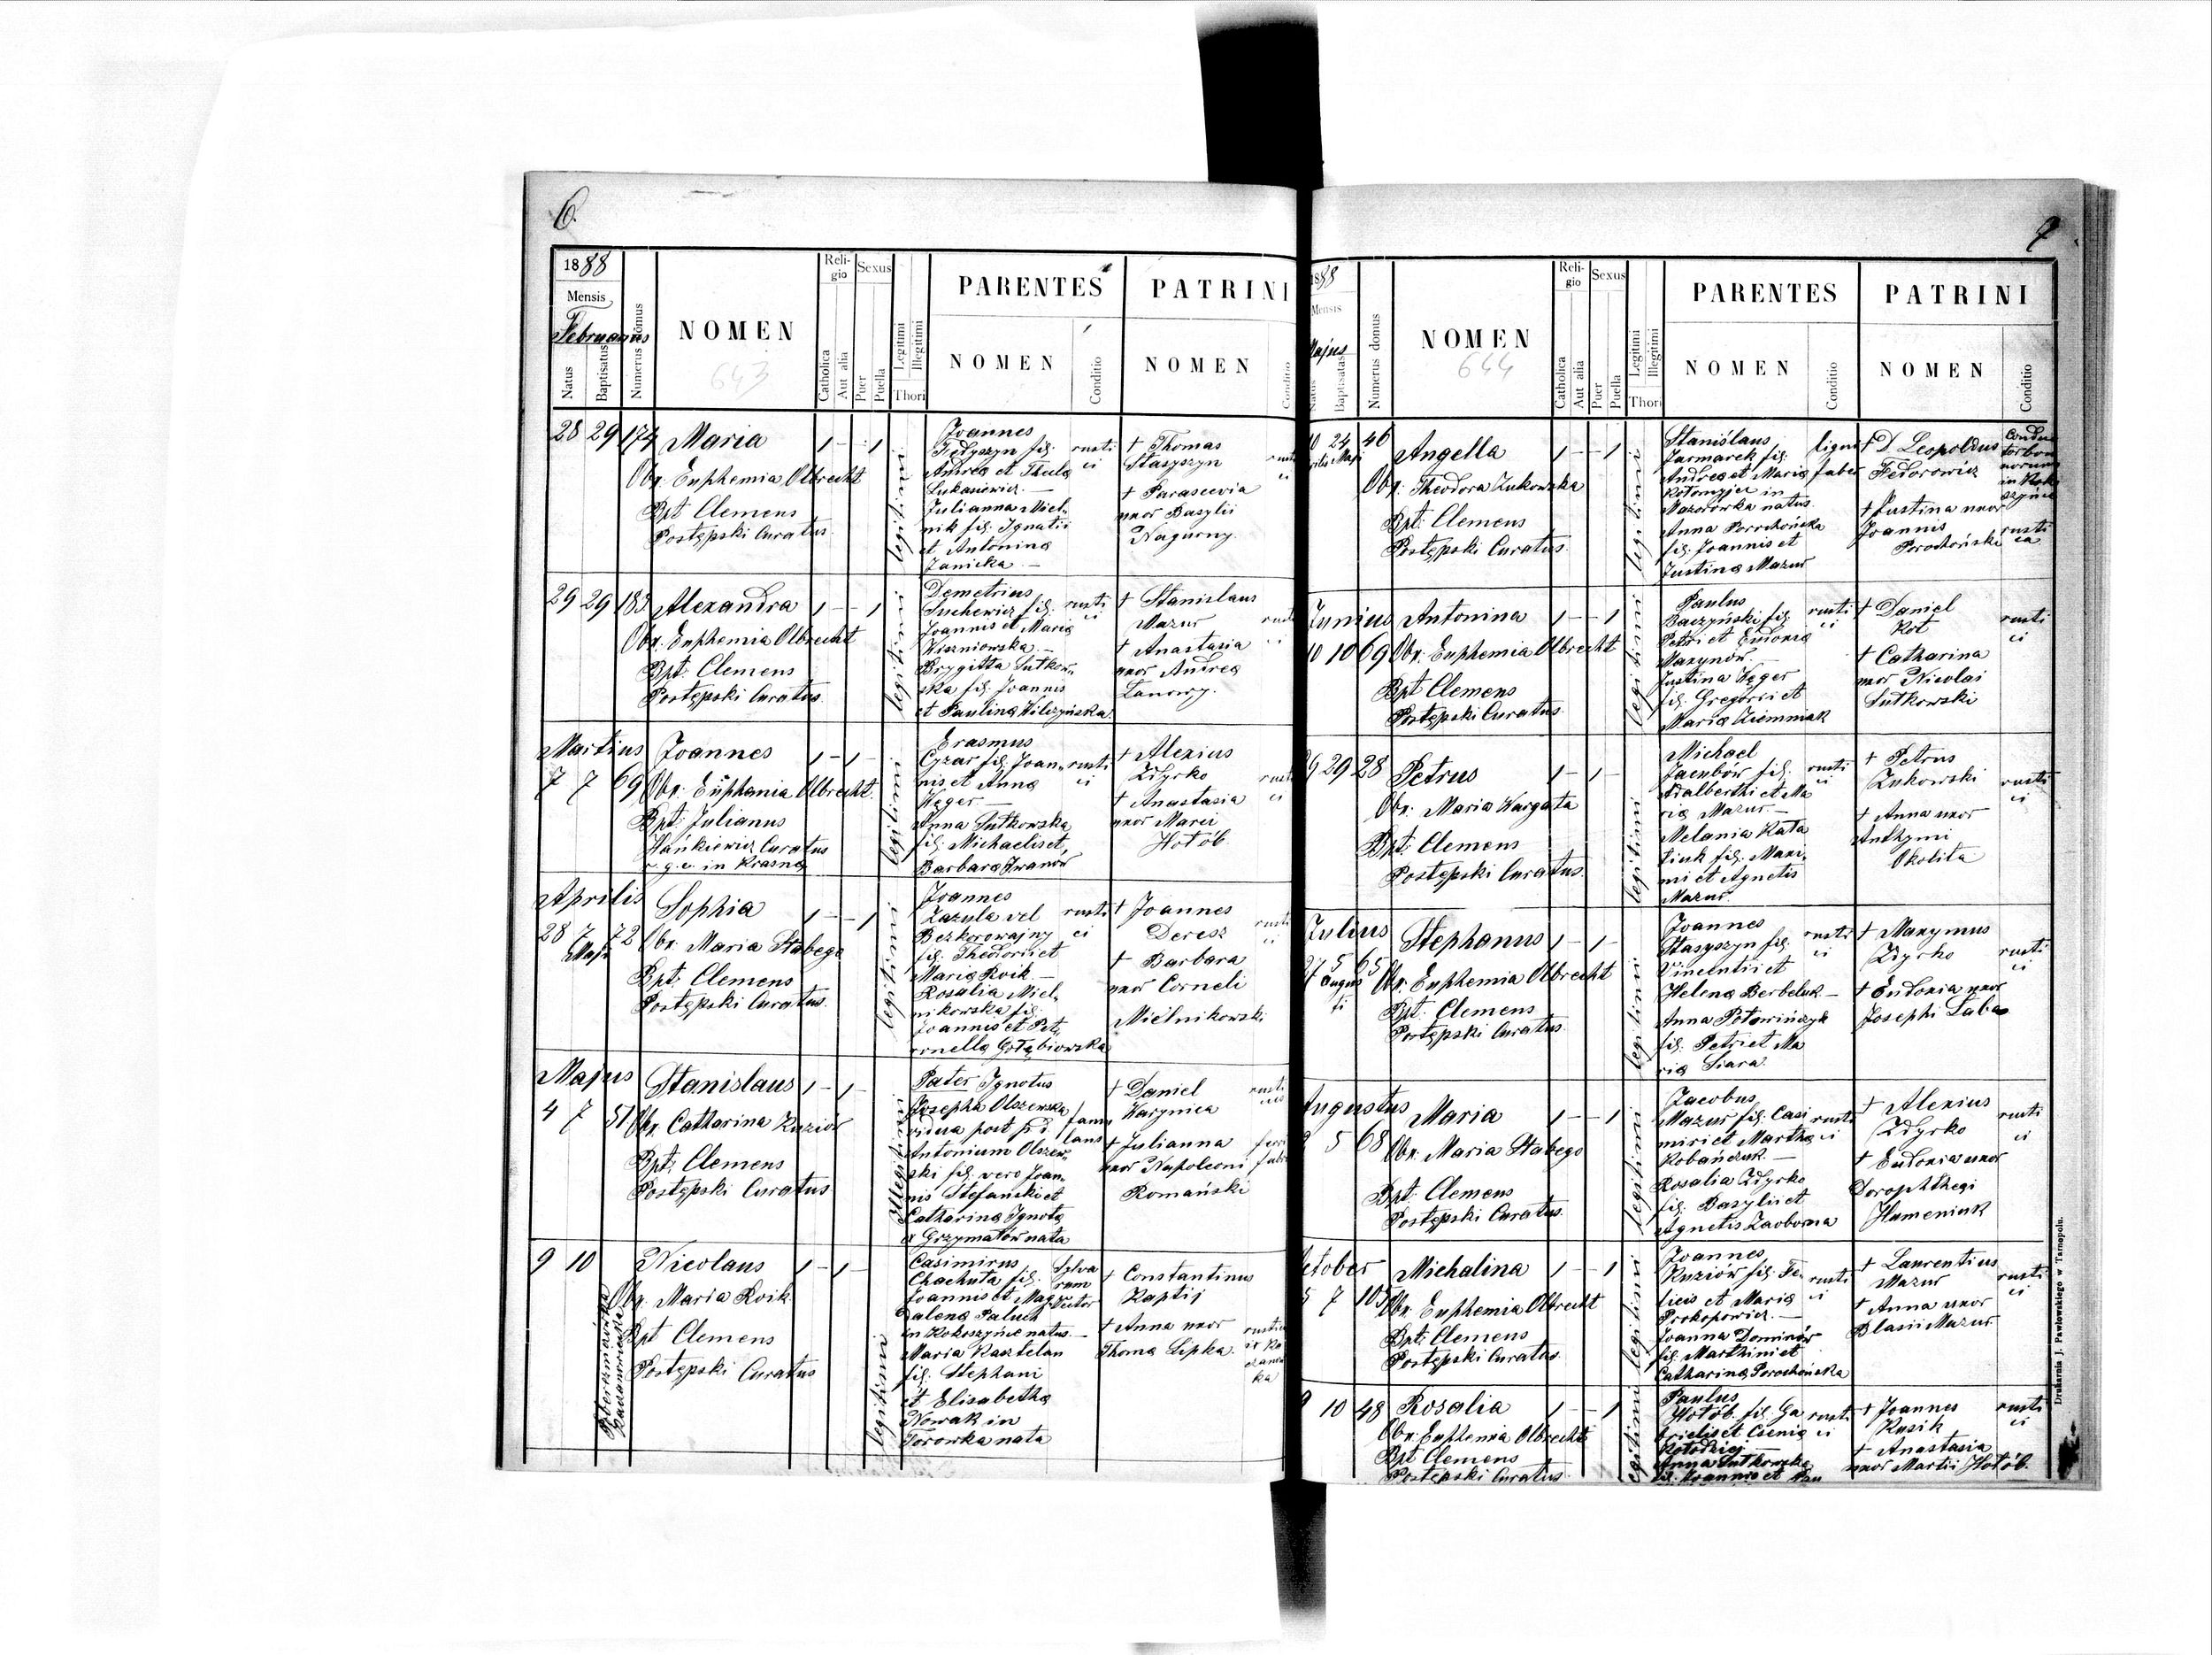 6.
1888
Mensis
Februarius
Natus
Baptisatus
Numerus domus
NOMEN
643
Religio
Catholica
Aut alia
Sexus
Puer
Puella
Legitimi
Illegitimi
Thori
PARENTES
NOMEN
Conditio
PATRINI
NOMEN
Conditio
28 29 174 Maria
Obs: Euphemia Olbrecht
Bpt Clemens
Postępski Curatus
legitimi
Joannes
Fedyszyn fil.
Andreę et Theclę
Lukasiewicz. —
Julianna Miel-
nik fil. Ignatii
et Antoninę
Janicka. —
rusti
ci
† Thomas
Stasyszyn
† Parascevia
uxor Basylii
Nagurny.
29 29 183 Alexandra
Obs: Euphemia Olbrecht
Bpt: Clemens
Postępski Curatus
legitimi
Demetrius
Suchewicz fil.
Joannis et Marię
Wiszniowska. —
Brygitta Sutkow-
ska fil. Joannis
et Paulinę Wilczyńska.
rusti
ci
† Stanislaus
Mazur
† Anastasia
uxor Andreę
Lanowy.
Martius
7 7 69 Joannes
Obs: Euphania Olbrecht.
Bpt: Julianus
Hańkiewicz Curatus
r. g. c. in Krasnę
legitimi
Erasmus
Cyzar fil. Joan-
nis et Annę
Węger —
Anna Sutkowska
fil. Michaelis et
Barbarę Iwanow
rusti
ci
† Alexius
Zdyrko
† Anastasia
uxor Marci
Hołób
Aprilis
28 7 72 Sophia
Maji
Obs: Maria Stabego
Bpt: Clemens
Postępski Curatus.
legitimi
Joannes
Zazula vel
Bezkorowajny
fil. Theodorii et
Marię Roik. —
Rosalia Miel-
nikowska fil.
Joannis et Pet-
ronellę Gołębiowska
rusti
ci
† Joannes
Deresz
† Barbara
uxor Corneli
Mielnikowski
Majus
4 7 51 Stanislaus
Obs: Catharina Kuziów
Bpt: Clemens
Postępski Curatus
Illegitimi
Pater Ignotus
Josepha Olszewska
vidua post p. d.
Antonium Olszew-
ski fil. vero Joan-
nis Stefański et
Catharinę Ignotę
ex Grzymałów nata
famu
lans
† Daniel
Warynica
† Julianna
uxor Napoleoni
Romański
9 10 Nicolaus
Obs: Maria Roik
Bpt Clemens
Postępski Curatus
legitimi
Casimirus
Chachuta fil.
Joannis et Mag-
dalenę Paluch
in Kokoszyńce natus. —
Maria Kasztelan
fil. Stephani
et Elisabethę
Nowak in
Torowka nata
Sylva
rum
† Constantinus
Kaptij
† Anna uxor
Thomę Lipka.
1888
Mensis
Majus
Natus
Baptisatus
Numerus domus
NOMEN
644
Religio
Catholica
Aut alia
Sexus
Puer
Puella
Legitimi
Illegitimi
Thori
PARENTES
NOMEN
Conditio
PATRINI
NOMEN
Conditio
24 46 Angella
Obs: Theodora Zukowska
Bpt: Clemens
Postępski Curatus.
legitimi
Stanislaus
Jarmarek fil.
Andreę et Marię
Kołomyjec in
Mazorowka natus
Anna Porochońska
fil. Joannis et
Justinę Mazur
ligni
faber
† D. Leopoldus
Fedorowicz
† Justina uxor
Joannis
Porochoński
rusti
ca
Junius
10 10 69 Antonina
Obs: Euphemia Olbrecht
Bpt Clemens
Postępski Curatus.
legitimi
Paulus
Baczyński fil.
Petri et Eudoxię
Maxymów. —
Justina Węger
fil. Gregorii et
Marię Ziemniak
rusti
ci
† Daniel
Kot
† Catharina
uxor Nicolai
Sutkowski
rusti
ci
29 29 28 Petrus
Obs: Maria Wargata
Bpt: Clemens
Postępski Curatus.
legitimi
Michael
Jacubów fil.
Adalberthi et Ma
rię Mazur. —
Melania Kata
fil. Maxi-
mi et Agnetis
Mazur.
rusti
ci
† Petrus
Zukowski
† Anna uxor
Anthymi
Okolita
rusti
ci
Julius
5 65 Stephanus
Augus
ti
Obs: Euphemia Olbrecht
Bpt: Clemens
Postępski Curatus.
legitimi
Joannes
Stasyszyn fil.
Vincentii et
Helenę Berbeluk —
Anna Potowińczyk
fil. Petri et Ma
rię Siara.
rusti
ci
† Maxymus
Zdyrko
† Eudoxia uxor
Josephi Saba
rusti
ci
Augustus
5 68 Maria
Obs: Maria Stabego
Bpt: Clemens
Postępski Curatus.
legitimi
Jacobus
Mazur fil. Casi
miri et Marthę
Kobańczuk. —
Rosalia Zdyrko
fil. Basylii et
Agnetis Zaoborna
rusti
ci
† Alexius
Zdyrko
† Eudoxia uxor
Dorophthegi
Humeniuk
rusti
ci
October
5 7 105 Michalina
Obs: Euphemia Olbrecht
Bpt: Clemens
Postępski Curatus.
legitimi
Joannes
Kuziów fil. Fe-
licis et Marię
Prokopowicz. —
Joanna Dominów
fil. Marthini et
Catharinę Porochońska
rusti
ci
† Laurentius
Mazur
† Anna uxor
Blasii Mazur
rusti
ci
9 10 48 Rosalia
Obs: Euphemia Olbrecht
Bpt Clemens
Postępski Curatus
legitimi
Paulus
Hołób fil. Ga
brielis et Csenię
Kołodziej —
Anna Sutkowska
fil. Joannis et Pau
rusti
ci
† Joannes
Kusik
† Anastasia
uxor Martii Hołób.
rusti
ci
Drukarnia J. Pawłowskiego w Tarnopolu.